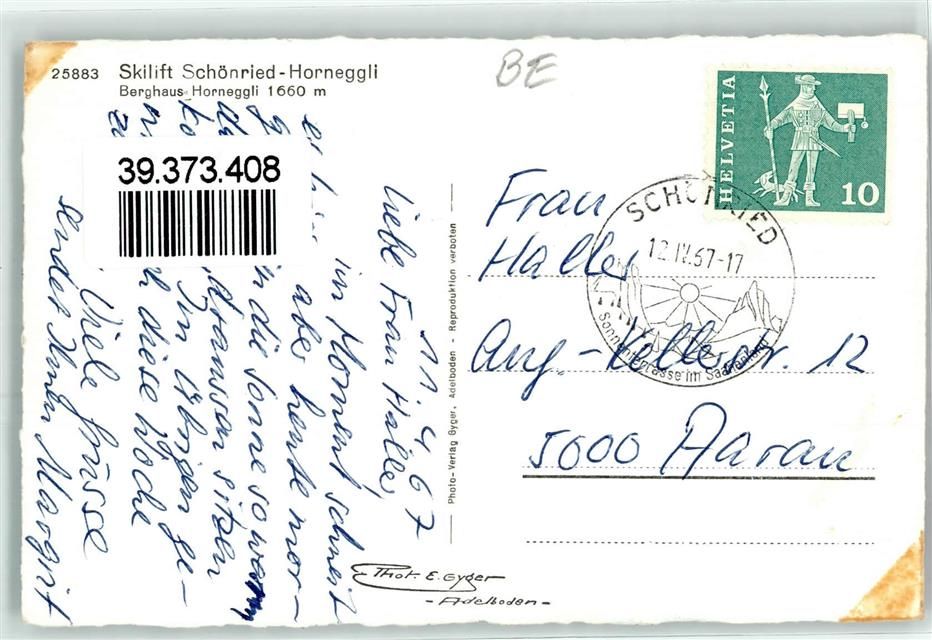 25883 Skilift Schönried-Horneggli
Berghaus Horneggli 1660 m
BE
39.373.408
HELVETIA
10
SCHÖNRIED
12.IV.67-17
Sonnenterrasse im Saanenland
Frau
Haller
Aug.-Kellerstr. 12
5000 Aarau
Photo-Verlag Gyger, Adelboden - Reproduktion verboten
Phot. E. Gyger
- Adelboden -
11. 4. 67
Liebe Frau Haller,
im Moment schneit
es hier aber heute mor-
die Sonne so warm
draussen sitzen
Im übrigen ge-
diese Woche
Viele Grüsse
sendet Ihnen Margrit